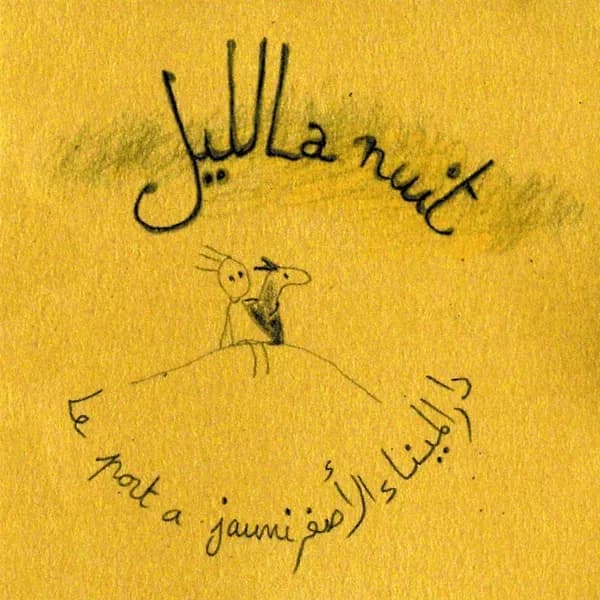 الليل La nuit
Le port a jauni دار الميناء الأصفر